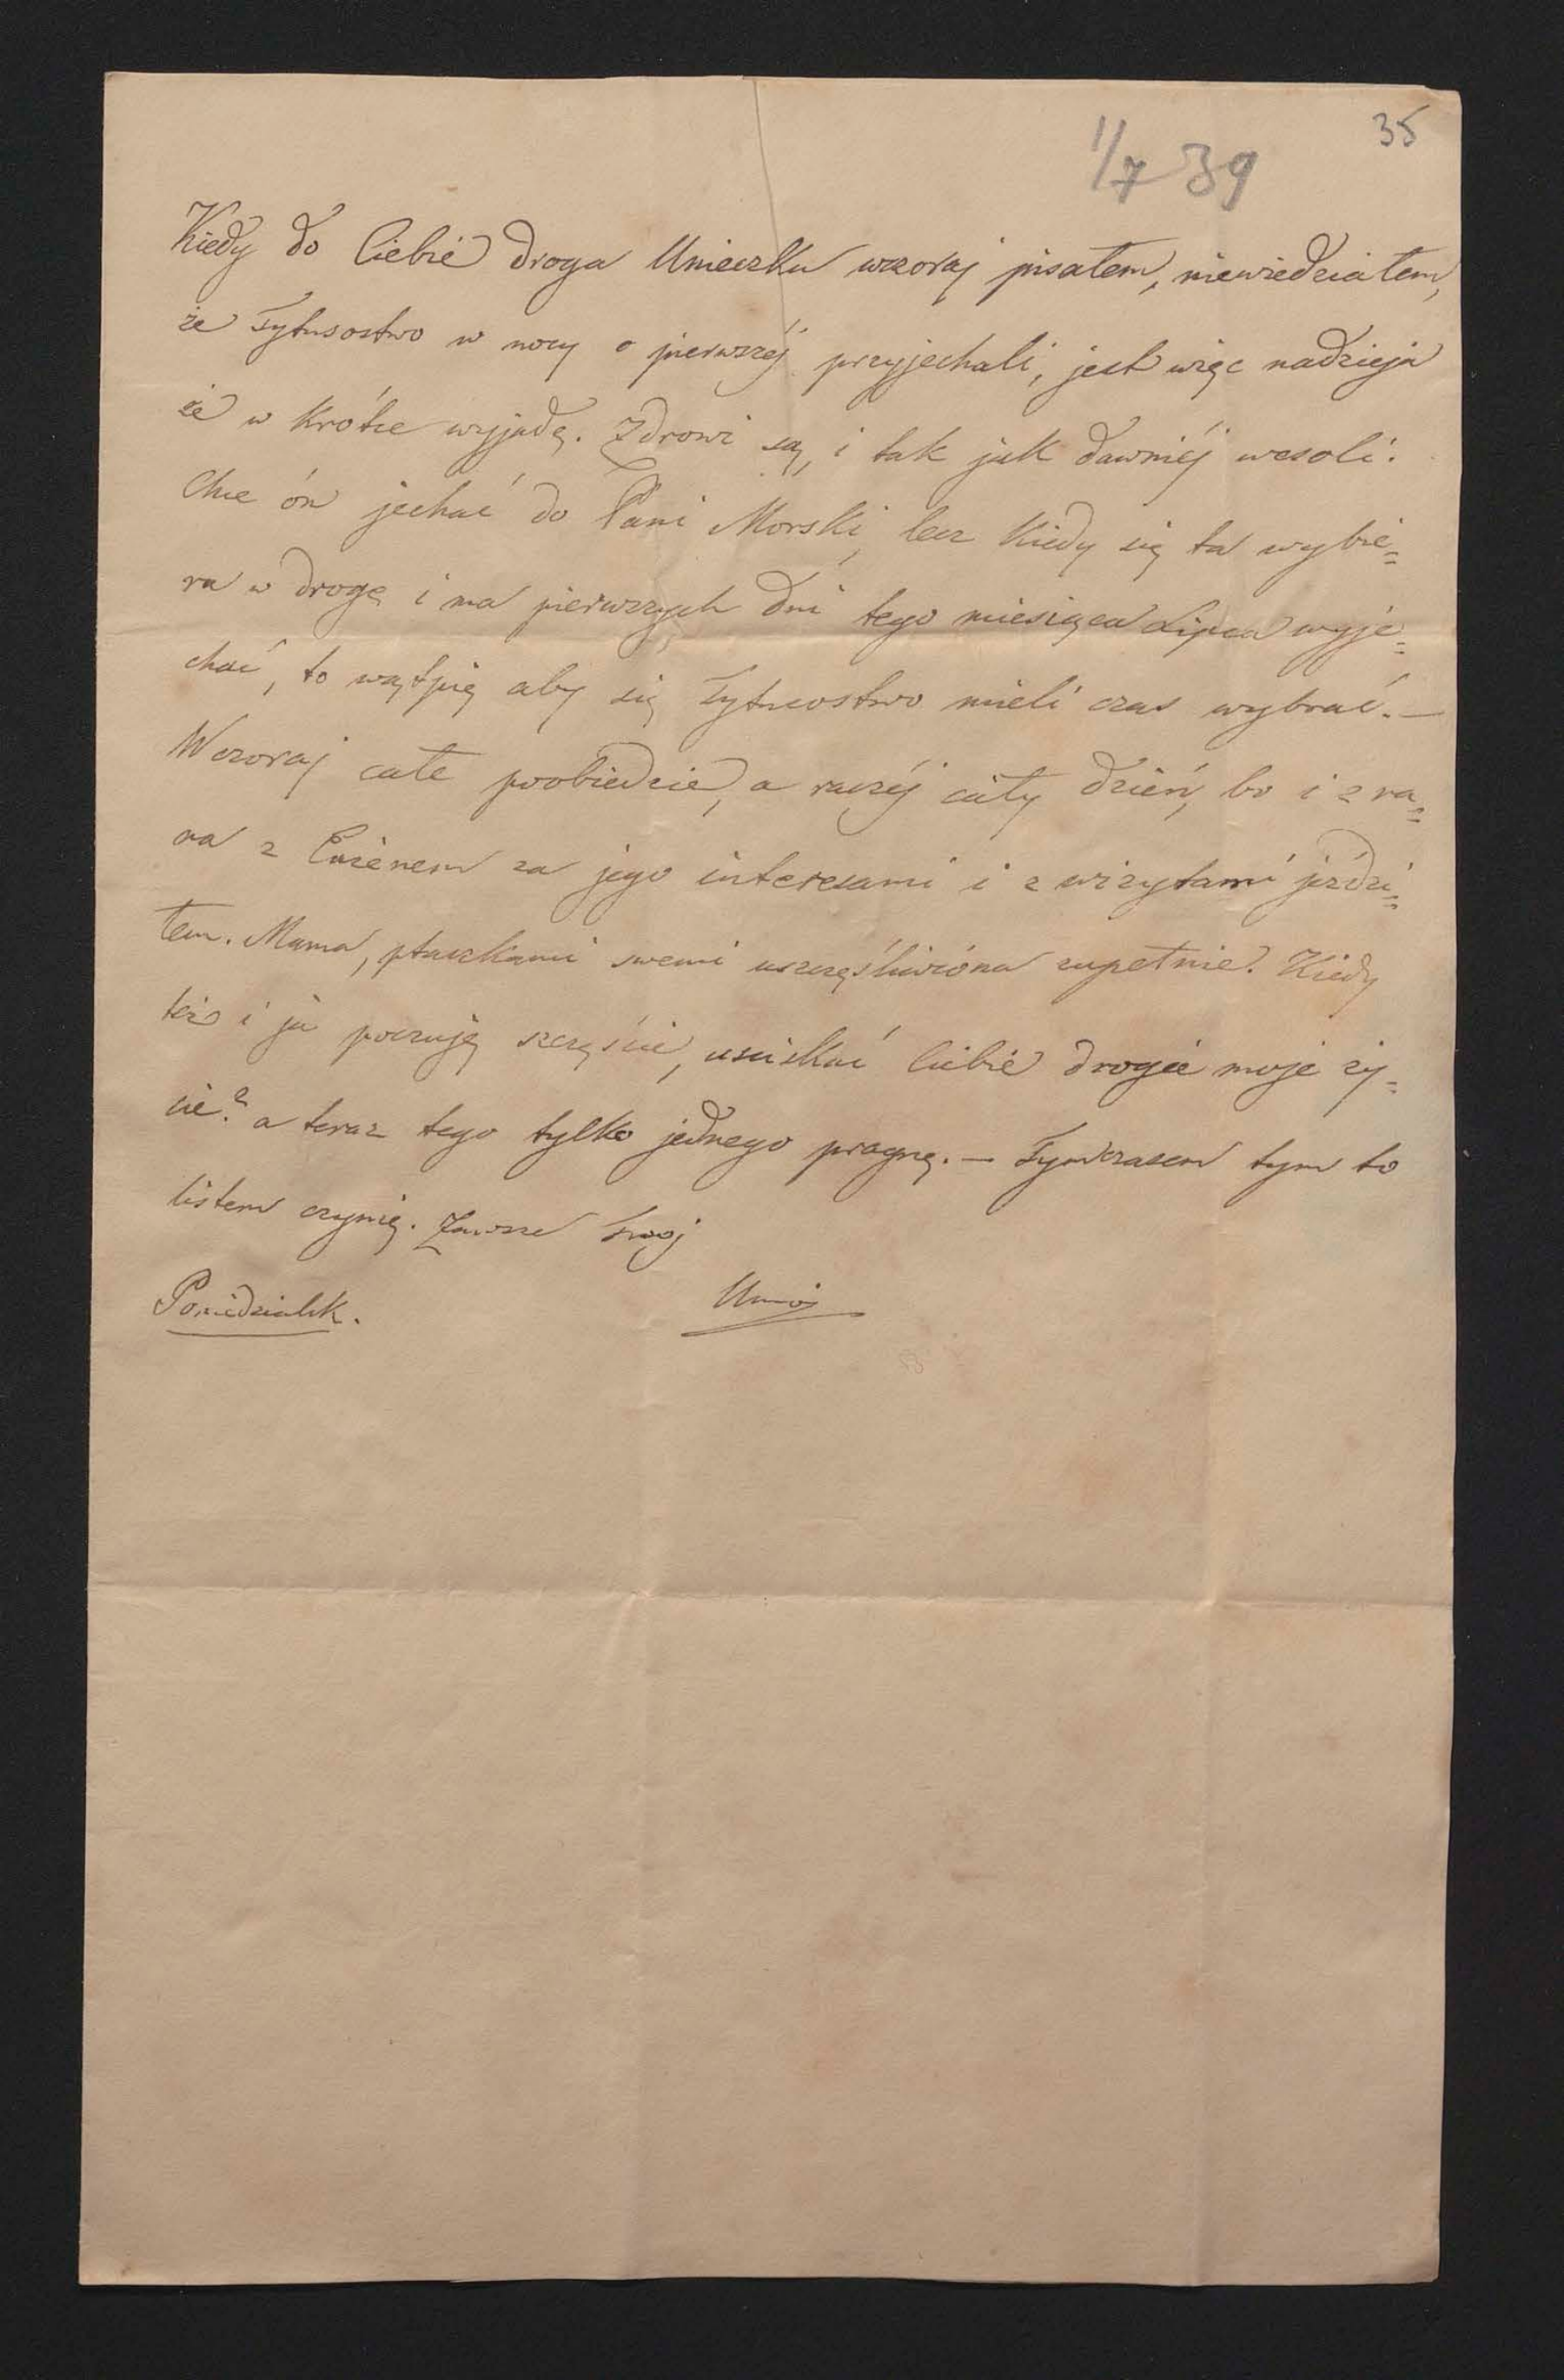 35
1/7 39
Kiedy do Ciebie droga Unieczku wczoraj pisałem, niewiedziałem,
że Tytusostwo w nocy o pierwszéj przyjechali, jest więc nadzieja
że w krótce wyjadę. Zdrowi są, i tak jak dawniéj weseli.
Chce ón jechać do Pani Morski, lecz kiedy się ta wybie=
ra w drogę i ma pierwszych dni tego miesiąca Lipca wyje=
chać, to wątpię aby się Tytusostwo mieli czas wybrać. —
Wczoraj całe poobiedzie, a raczéj cały dzień, bo i z ra=
na z Eużenem za jego interesami i z wizytami jeździ=
łem. Mama, ptaszkami swemi uszczęśliwióna zupełnie. Kiedy
też i ja poczuję szczęście, uściskać Ciebie drogie moje ży=
cie? a teraz tego tylko jednego pragnę. — Tymczasem tym to
listem czynię. Zawsze Twoj
Poniedziałek. Unio